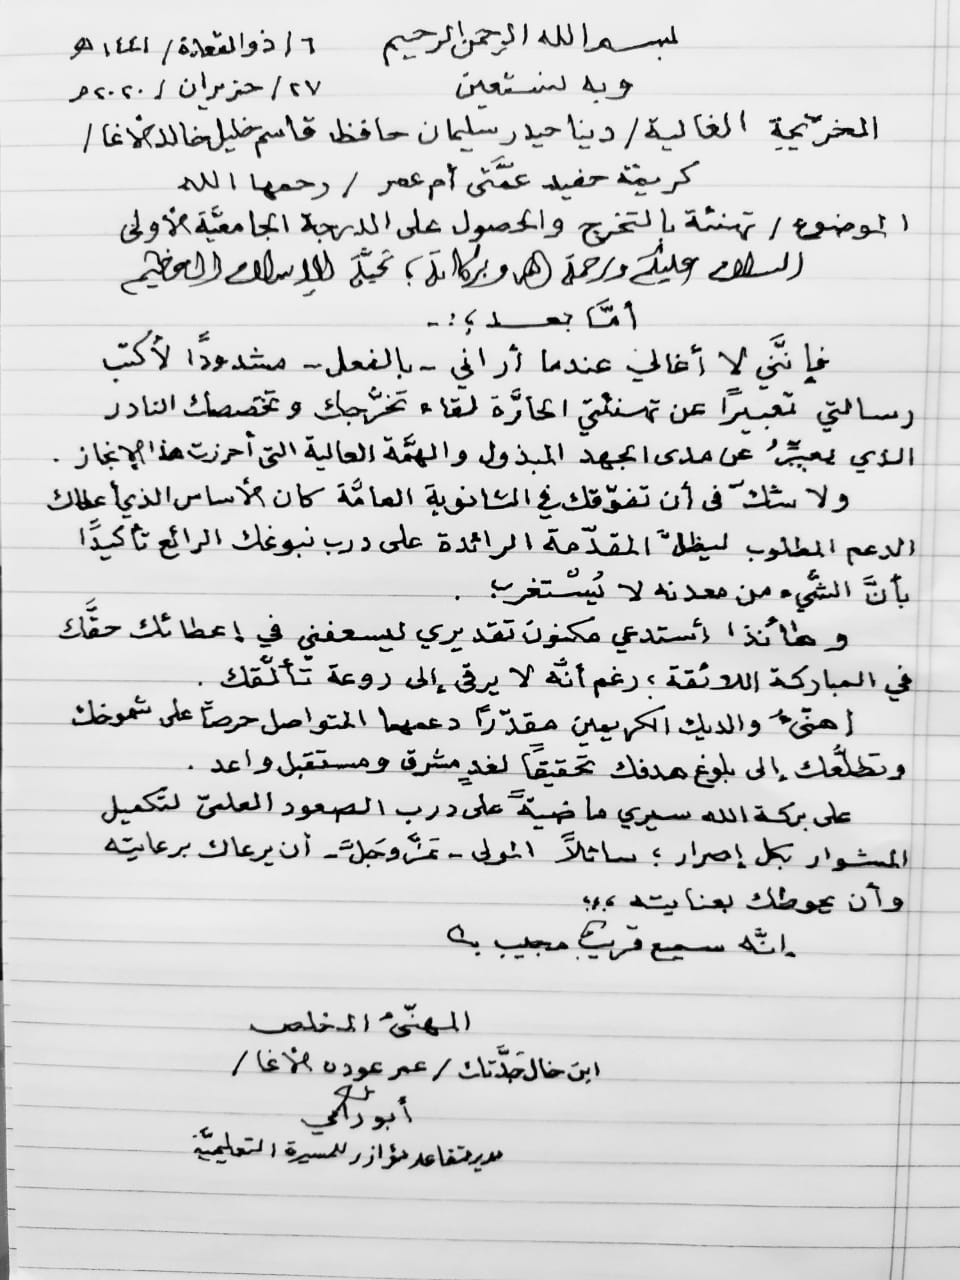 بسم الله الرحمن الرحيم ٦/ذو القعدة/١٤٤١هـ
وبه نستعين ٢٧/حزيران/٢٠٢٠م
الخرّيجة الغالية/ دينا حيدر سليمان حافظ قاسم خليل خالد الأغا/
كريمة حفيد عمَّتي أم عمر / رحمها الله
الموضوع/ تهنئة بالتخرج والحصول على الدرجة الجامعيَّة الأولى
السلام عليكم ورحمة الله وبركاته؛ تحيَّة الإسلام العظيم
أمَّا بعد ؛:-
فإنَّني لا أغالي عندما أراني - بالفعل - مشدودًا لأكتب
رسالتي تعبيرًا عن تهنئتي الحارَّة لقاء تخرُّجك وتخصصك النادر
الذي يعبِّرُ عن مدى الجهد المبذول والهمَّة العالية التي أحرزت هذا الإنجاز .
ولا شكّ في أن تفوّقك في الثانوية العامَّة كان الأساس الذي أعطاك
الدعم المطلوب ليظلَّ المقدّمة الرائدة على درب نبوغك الرائع تأكيدًا
بأنَّ الشَّيء من معدنه لا يُسْتغرب .
وهاأنذا أستدعي مكنون تقديري ليسعفني في إعطائك حقَّك
في المباركة اللائقة؛ رغم أنَّه لا يرقى إلى روعة تألّقك .
أهنّىءُ والديك الكريمين مقدّرًا دعمهما المتواصل حرصًا على شموخك
وتطلُّعك إلى بلوغ هدفك تحقيقًا لغدٍ مشرق ومستقبل واعد .
على بركة الله سيري ماضيةً على درب الصعود العلميّ لتكميل
المشوار بكل إصرار؛ سائلاً المولى - عَزَّ وجَلَّ - أن يرعاك برعايته
وأن يحوطك بعنايته ،،،
إنَّه سميع قريب مجيب
المهنّىءُ المخلص
ابن خال جَدَّتك/ عمر عودة الأغا/
أبو رامي
مدير متقاعد مؤازر للمسيرة التعليميَّة